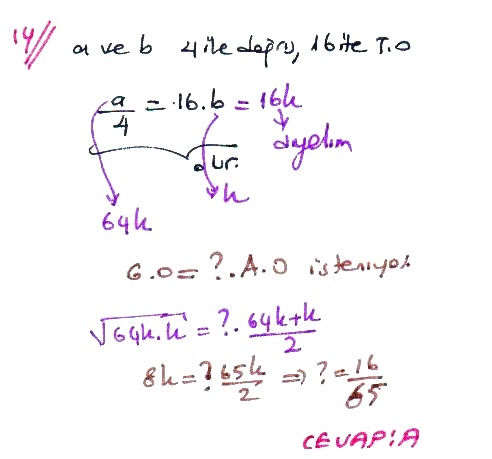 14// a ve b 4 ile doğru, 16 ile T.O
a/4 = 16.b = 16k
diyelim
dur.
k
64k
G.O = ?.A.O isteniyor
√64k.k = ?. 64k+k/2
8k = ? 65k/2 ⇒ ? = 16/65
CEVAP: A